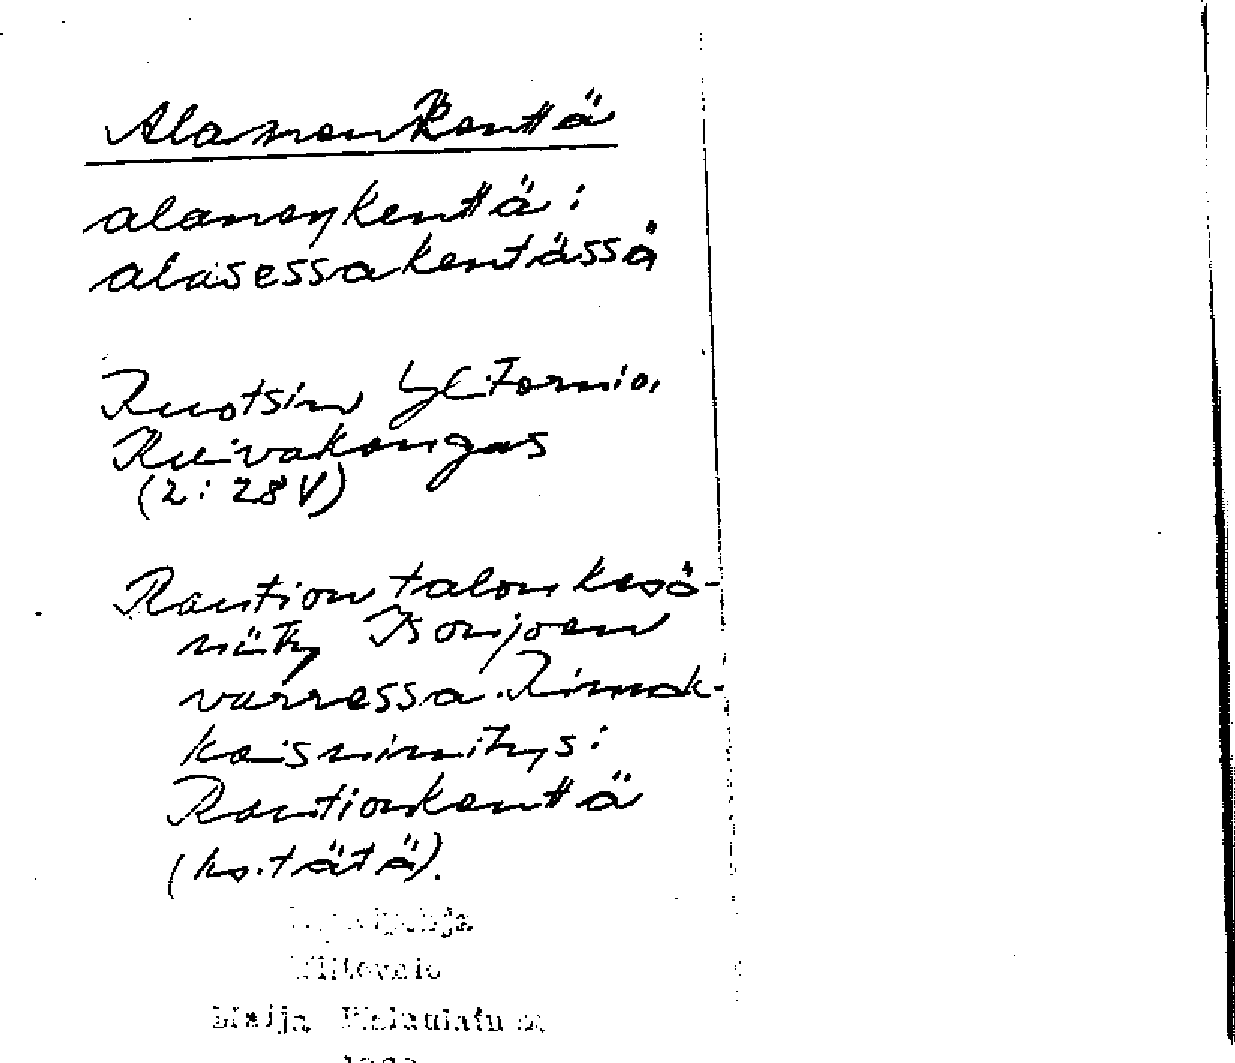 Alanenkenttä
alaneŋkenttä:
alasessakentässä
Ruotsin Yli-Tornio,
Kuivakangas
(2: 28 V)
Raution talon kesä-
niitty Isonjoen
varressa. Rinnak-
kaisnimitys:
Rautionkenttä
(ks. tätä).
Maija